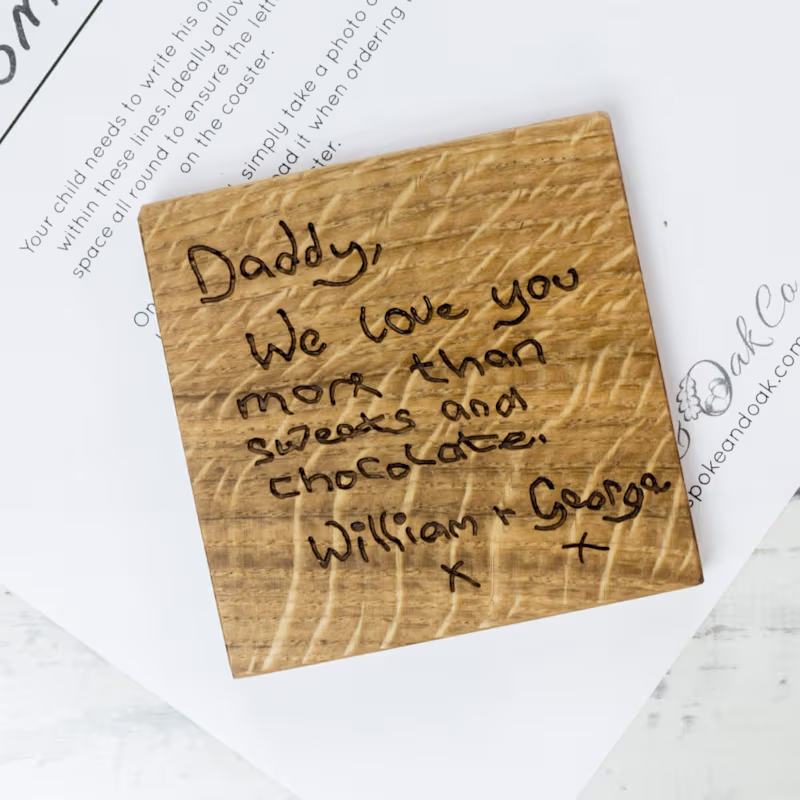 Your child needs to write his
within these lines. Ideally
space all round to ensure the
on the coaster.
simply take a photo
it when ordering
Daddy,
We love you
more than
sweets and
chocolate.
William + George
x +
Oak Co
spokeandoak.com